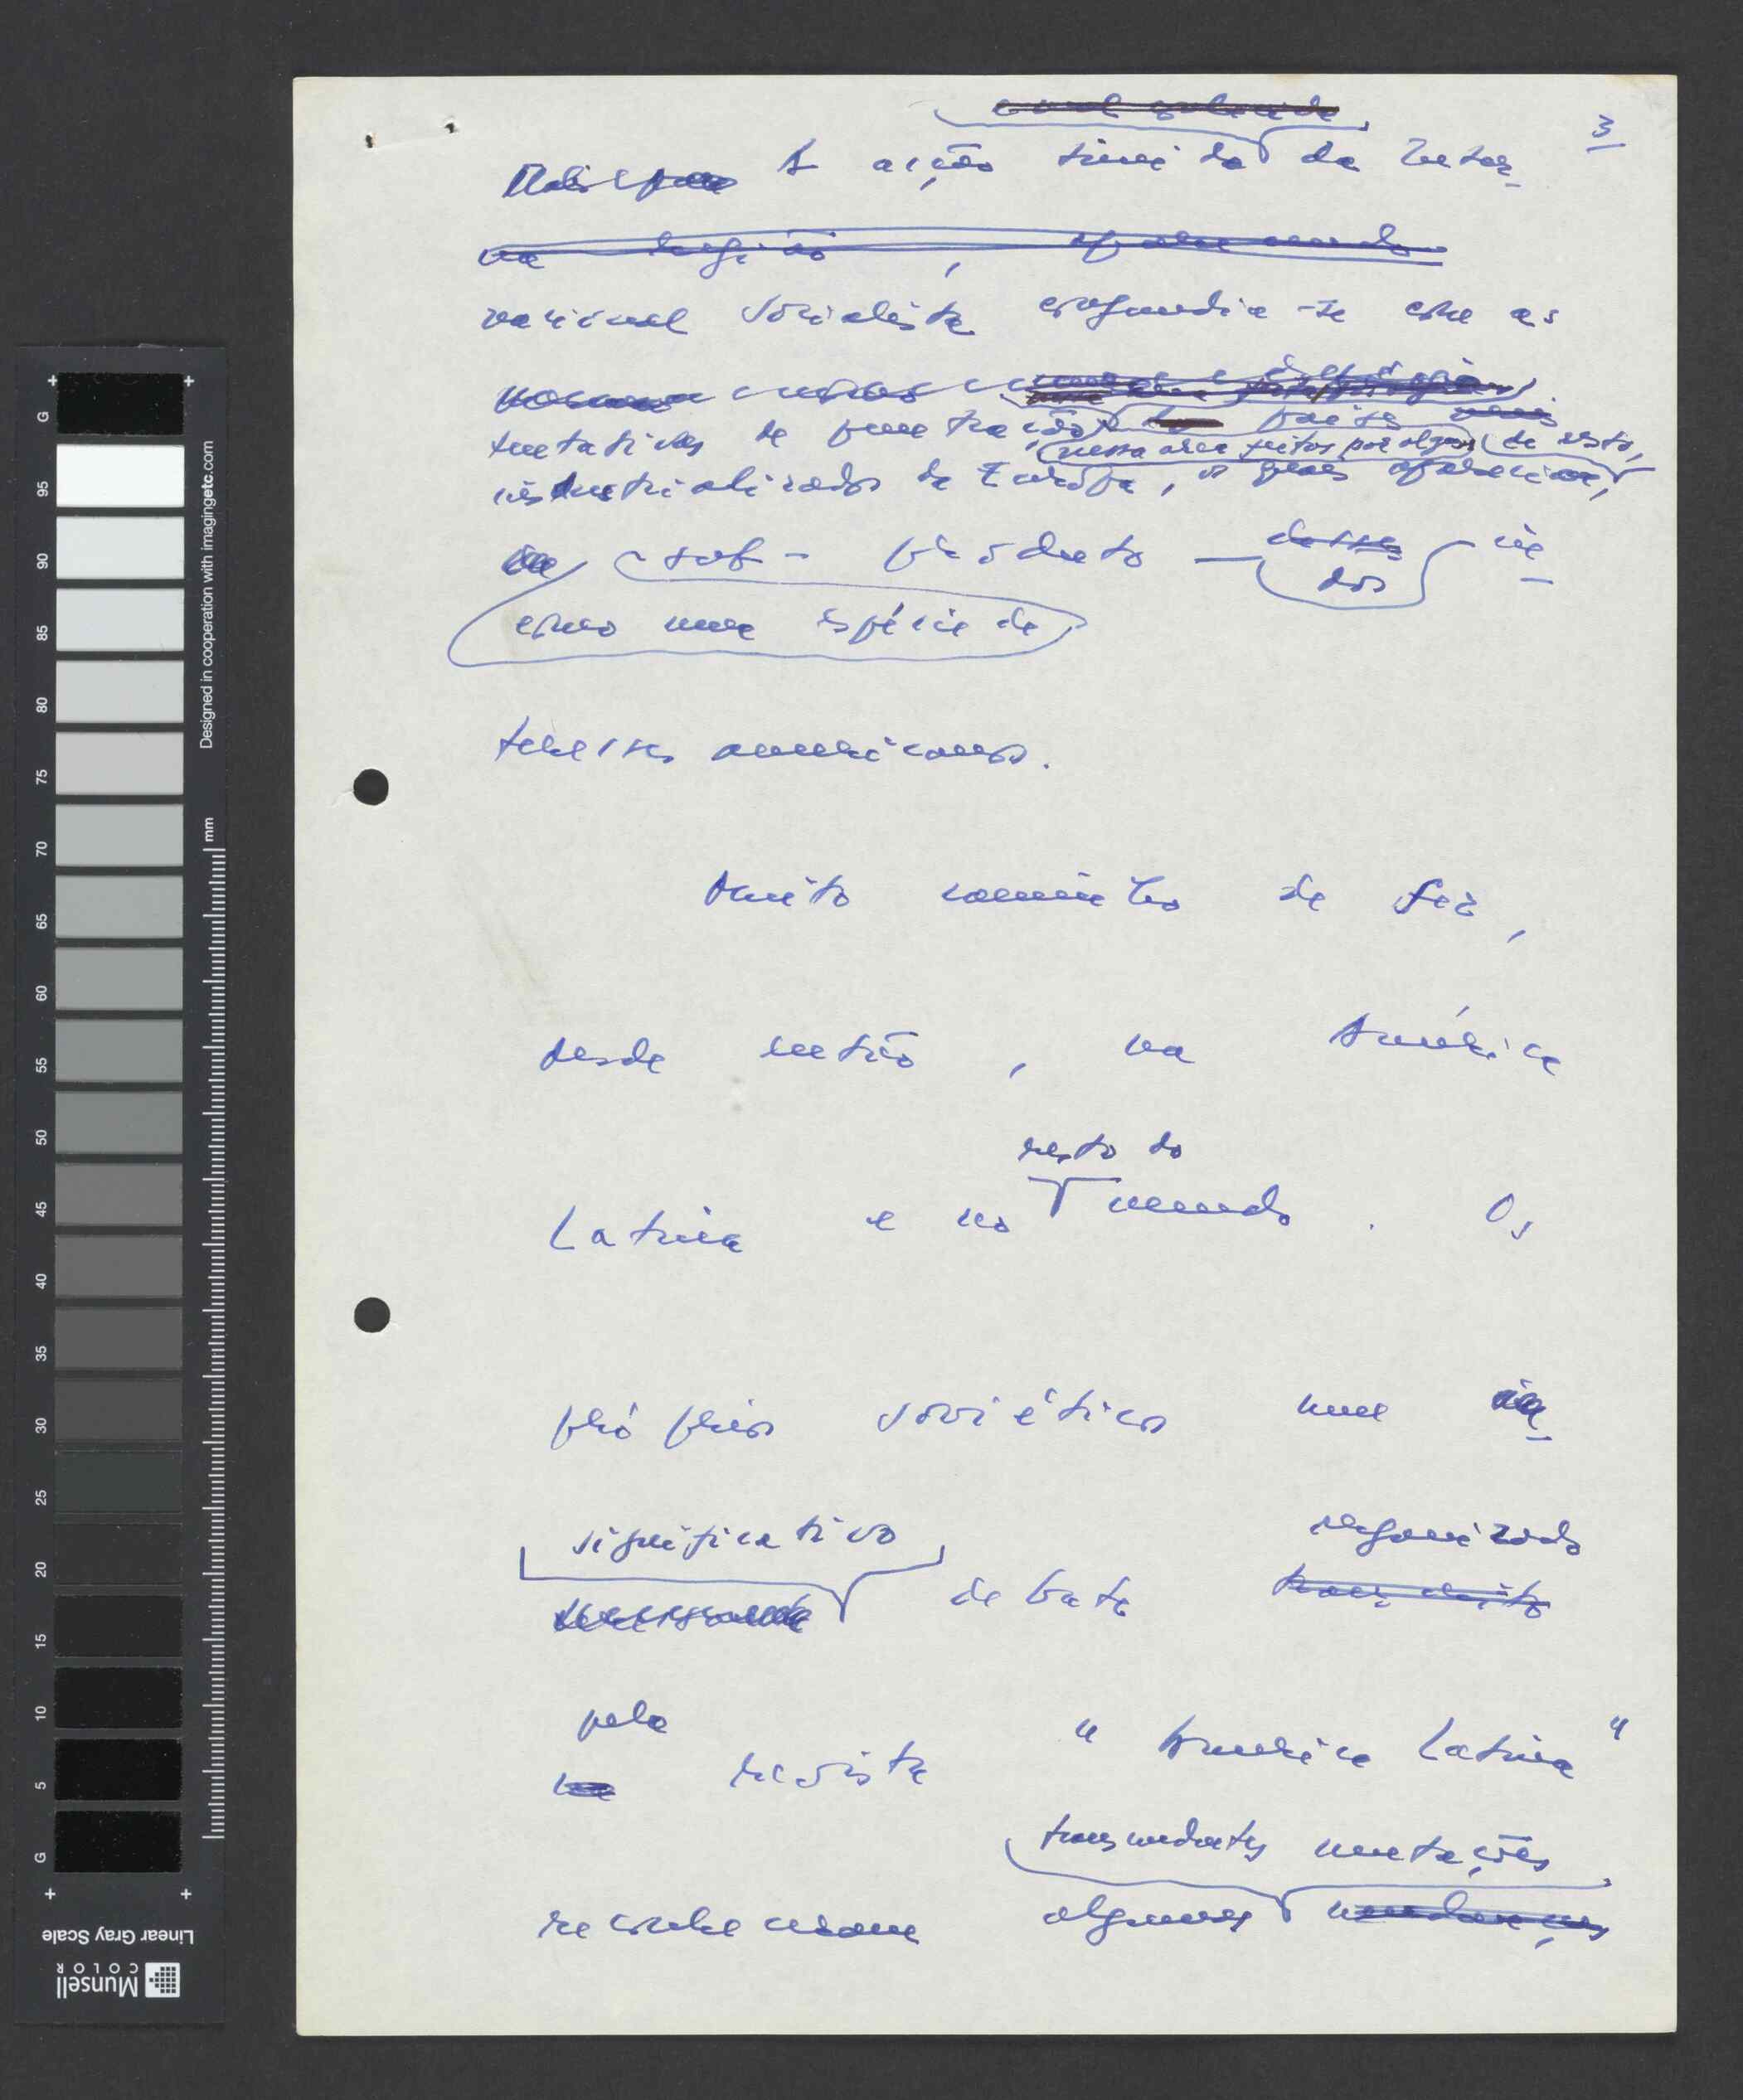 3
A acção tímida da Inter-
nacional Socialista confundia-se com as
tentativas de penetração
nessa área feitas por alguns países
industrializados da Europa, os quais apareciam, de resto,
como uma espécie de
sub-produto dos in-
teresses americanos.
Muito caminho se fez,
desde então, na América
resto do
Latina e no mundo. Os
próprios soviéticos num
significativo organizado
debate
pela
revista "America Latina"
transcendentes mutações
reconheceram algumas
G
95
90
85
80
75
70
65
60
55
50
45
40
35
30
25
20
15
10
5
G
mm
Designed in cooperation with imagingetc.com
Linear Gray Scale
Munsell
COLOR